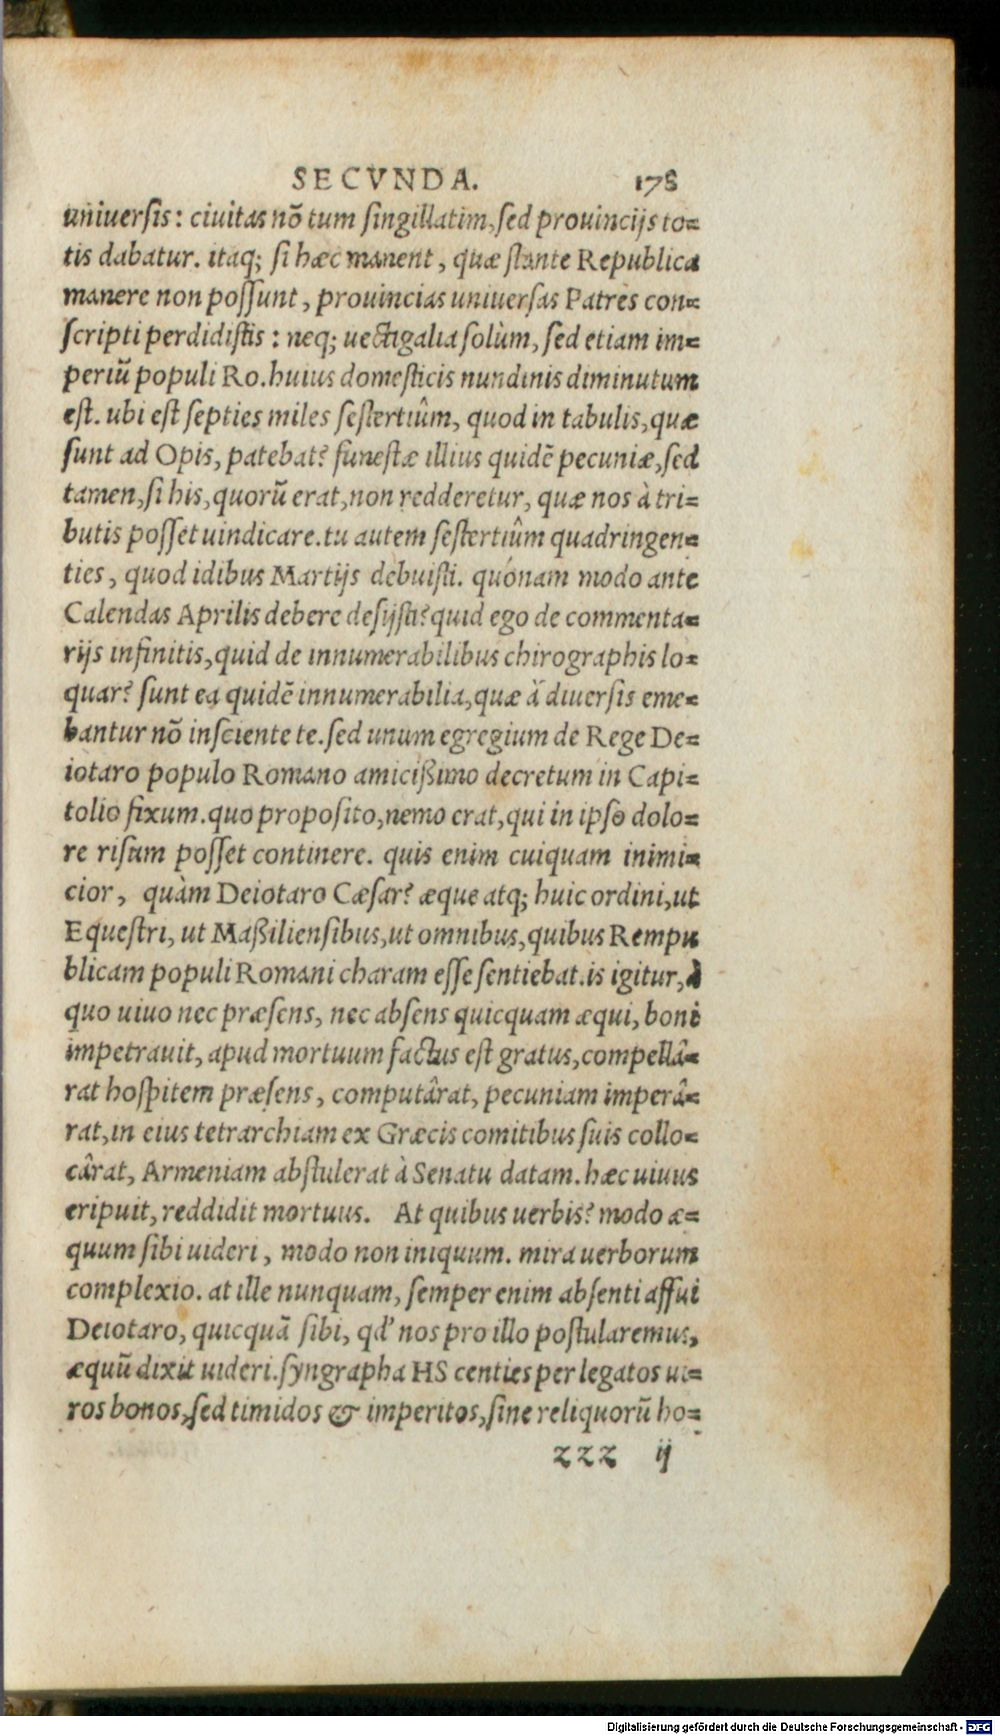 SECVNDA. 178
uniuersis: ciuitas nõ tum singillatim, sed prouincijs to=
tis dabatur. itaq; si hæc manent, quæ stante Republica
manere non possunt, prouincias uniuersas Patres con=
scripti perdidistis: neq; uectigalia solùm, sed etiam im=
periũ populi Ro. huius domesticis nundinis diminutum
est. ubi est septies miles sestertiûm, quod in tabulis, quæ
sunt ad Opis, patebat? funestæ illius quidẽ pecuniæ, sed
tamen, si his, quorũ erat, non redderetur, quæ nos à tri=
butis posset uindicare. tu autem sestertiûm quadringen=
ties, quod idibus Martijs debuisti. quónam modo ante
Calendas Aprilis debere desijsti? quid ego de commenta=
rijs infinitis, quid de innumerabilibus chirographis lo=
quar? sunt ea quidẽ innumerabilia, quæ à diuersis eme=
bantur nõ insciente te. sed unum egregium de Rege De=
iotaro populo Romano amicißimo decretum in Capi=
tolio fixum. quo proposito, nemo erat, qui in ipso dolo=
re risum posset continere. quis enim cuiquam inimi=
cior, quàm Deiotaro Cæsar? æque atq; huic ordini, ut
Equestri, ut Maßiliensibus, ut omnibus, quibus Rempu
blicam populi Romani charam esse sentiebat. is igitur, à
quo uiuo nec præsens, nec absens quicquam æqui, boni
impetrauit, apud mortuum factus est gratus, compellâ=
rat hospitem præsens, computârat, pecuniam imperâ=
rat, in eius tetrarchiam ex Græcis comitibus suis collo=
cârat, Armeniam abstulerat à Senatu datam. hæc uiuus
eripuit, reddidit mortuus. At quibus uerbis? modo æ=
quum sibi uideri, modo non iniquum. mira uerborum
complexio. at ille nunquam, semper enim absenti affui
Deiotaro, quicquã sibi, qd' nos pro illo postularemus,
æquũ dixit uideri. syngrapha HS centies per legatos ui=
ros bonos, sed timidos & imperitos, sine reliquorũ ho=
zzz ij
Digitalisierung gefördert durch die Deutsche Forschungsgemeinschaft - DFG